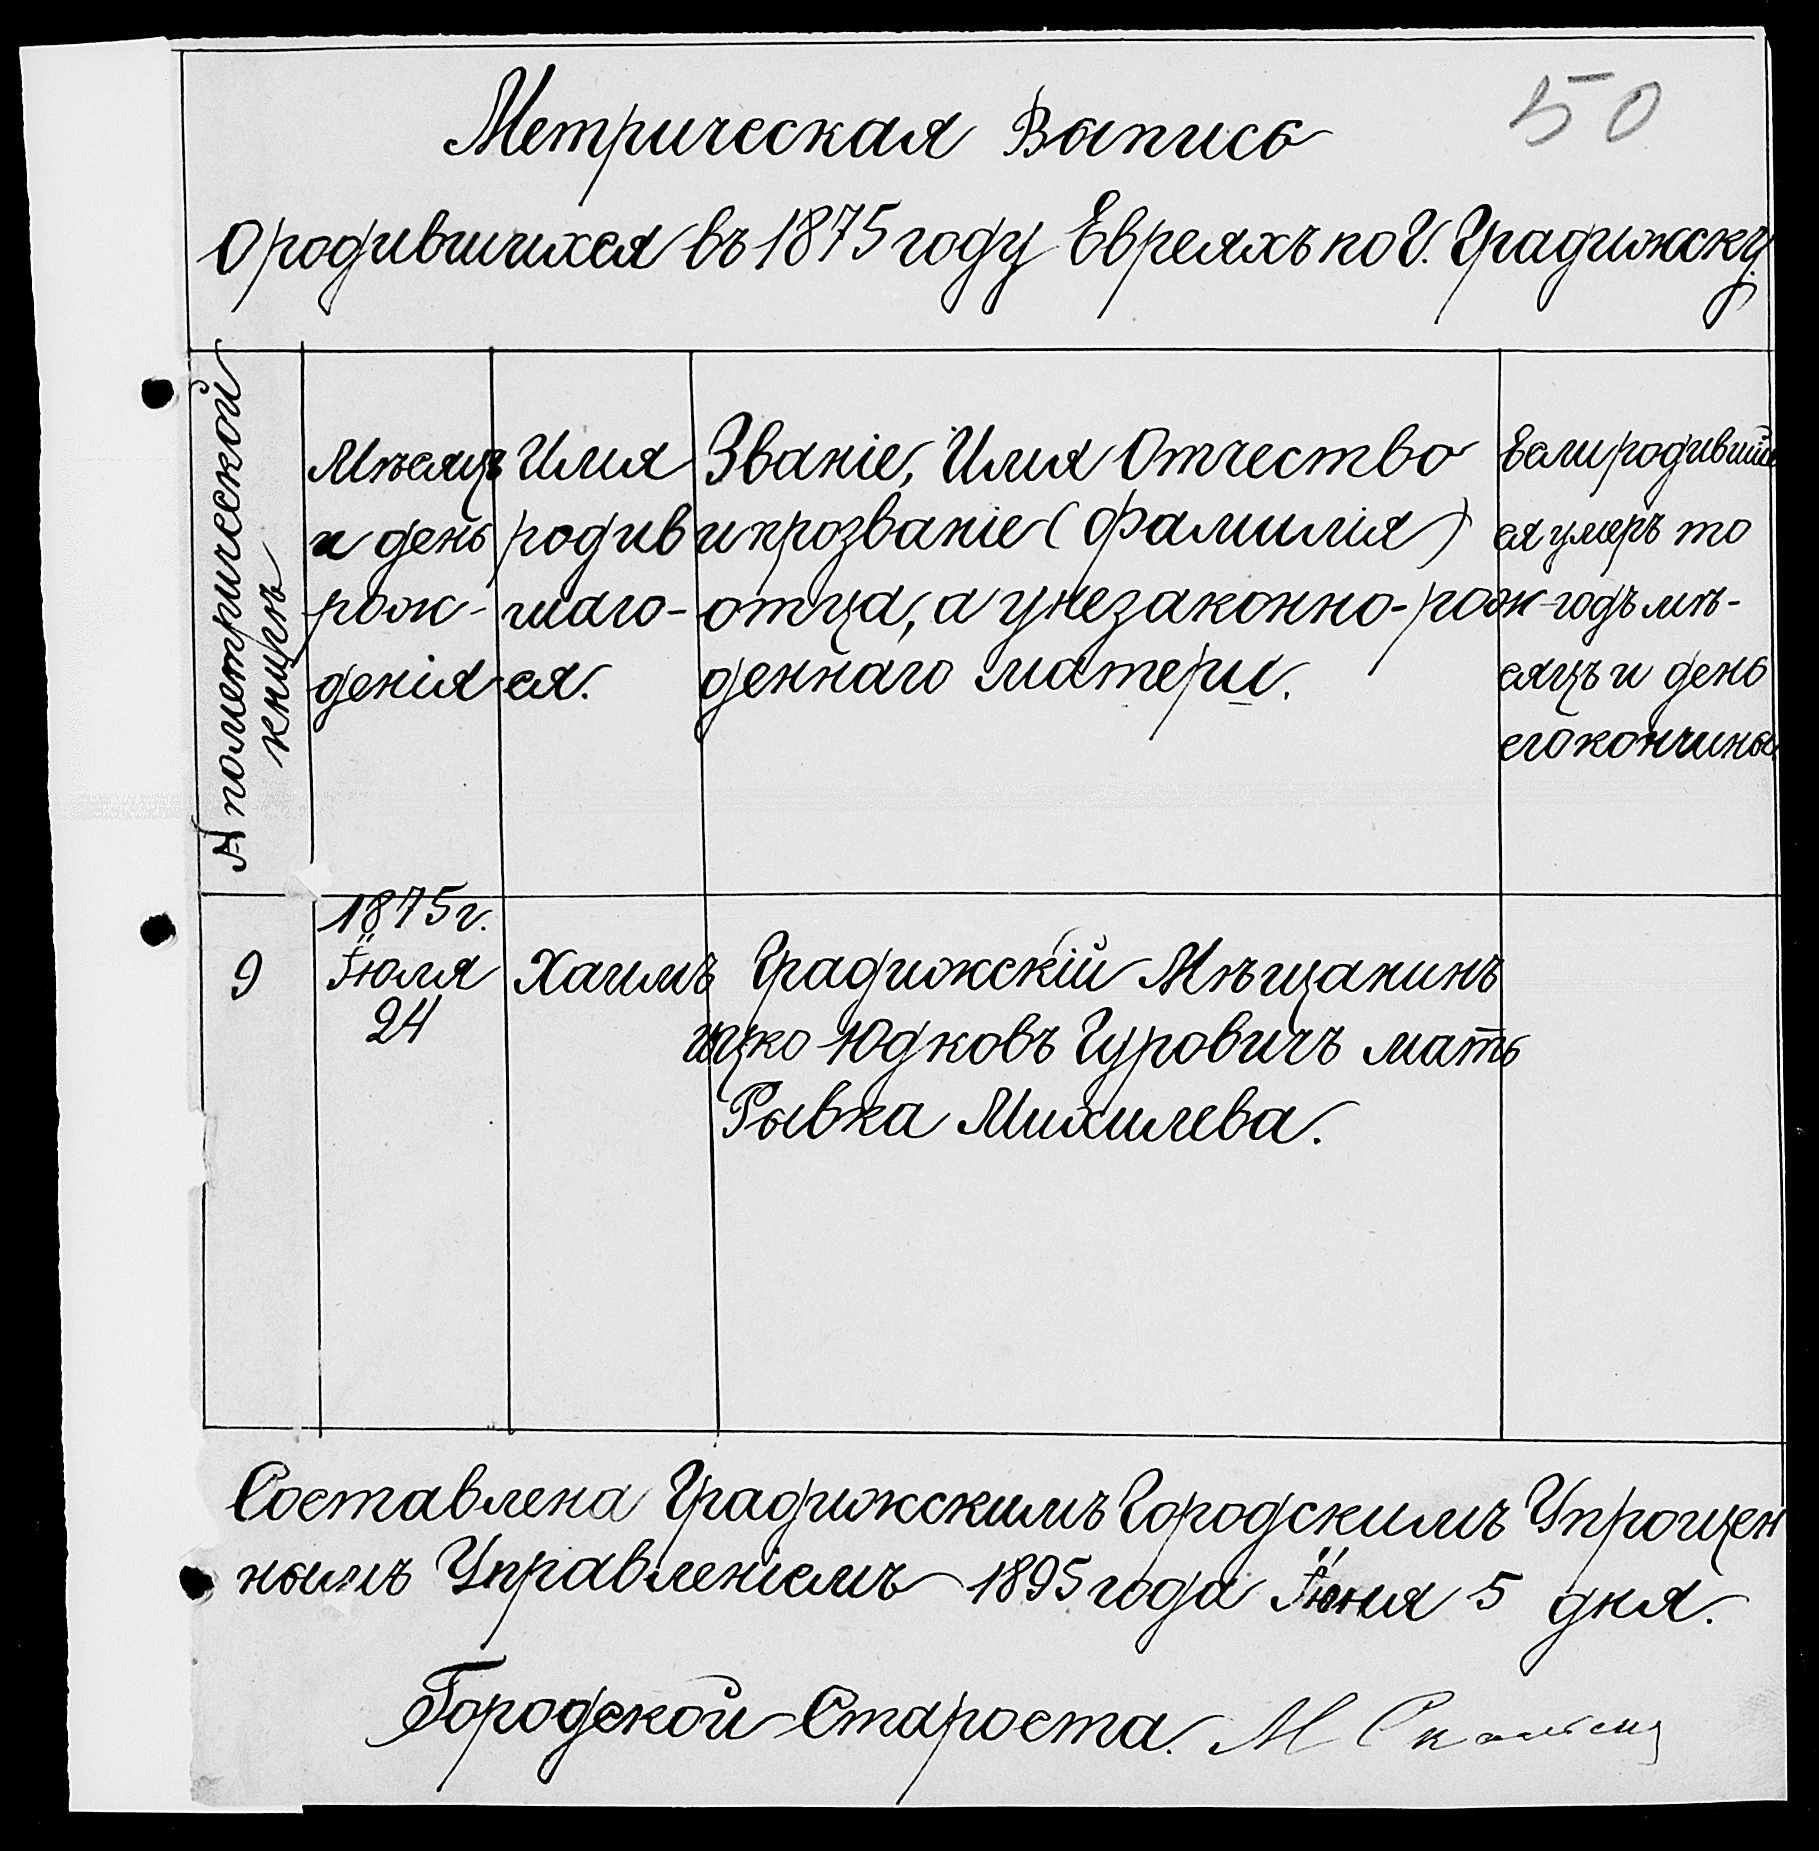 50
Метрическая Выпись
О родившихся въ 1875 году Евреяхъ по Г. Градижску.
№ по метрической
книгѣ
Мѣсяцъ
и день
рож-
денія
Имя
родив
шаго-
ся.
Званіе, Имя Отчество
и прозваніе (фамилія)
отца, а у незаконно-рож-
деннаго матери.
Если родившій
ся умеръ то
годъ мѣ-
сяцъ и день
его кончины.
9
1875 г.
Іюля
24
Хаимъ
Градижскій Мѣщанинъ
ицко Юдковъ Гуровичъ мать
Рывка Михилева.
Составлена Градижскимъ Городскимъ Упрощен
нымъ Управленіемъ 1895 года Іюня 5 дня.
Городской Староста. М